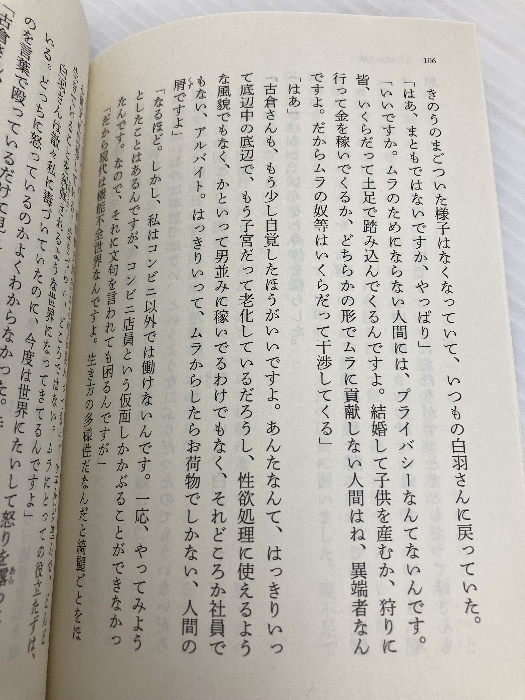 106
きのうのまごついた様子はなくなっていて、いつもの白羽さんに戻っていた。
「はあ、まともではないですか、やっぱり」
「いいですか。ムラのためにならない人間には、プライバシーなんてないんです。
皆、いくらだって土足で踏み込んでくるんですよ。結婚して子供を産むか、狩りに
行って金を稼いでくるか、どちらかの形でムラに貢献しない人間はね、異端者なん
ですよ。だからムラの奴等はいくらだって干渉してくる」
「はあ」
「古倉さんも、もう少し自覚したほうがいいですよ。あんたなんて、はっきりいっ
て底辺中の底辺で、もう子宮だって老化しているだろうし、性欲処理に使えるよう
な風貌でもなく、かといって男並みに稼いでるわけでもなく、それどころか社員で
もない、アルバイト。はっきりいって、ムラからしたらお荷物でしかない、人間の
屑ですよ」
くず
「なるほど。しかし、私はコンビニ以外では働けないんです。一応、やってみよう
としたことはあるんですが、コンビニ店員という仮面しかかぶることができなかっ
たんです。なので、それに文句を言われても困るんですが」
「だから現代は機能不全世界なんですよ。生き方の多様性だなんだと綺麗ごとをほ
ムラにとっての役立たずは、
世界になってきてるんですよ」
白羽さんは散々私に毒づいていたのに、今度は世界にたいして怒りを露
あら
いる。どっちに怒っているのかよくわからなかった。
のを言葉で殴っているだけで見
「古倉さん